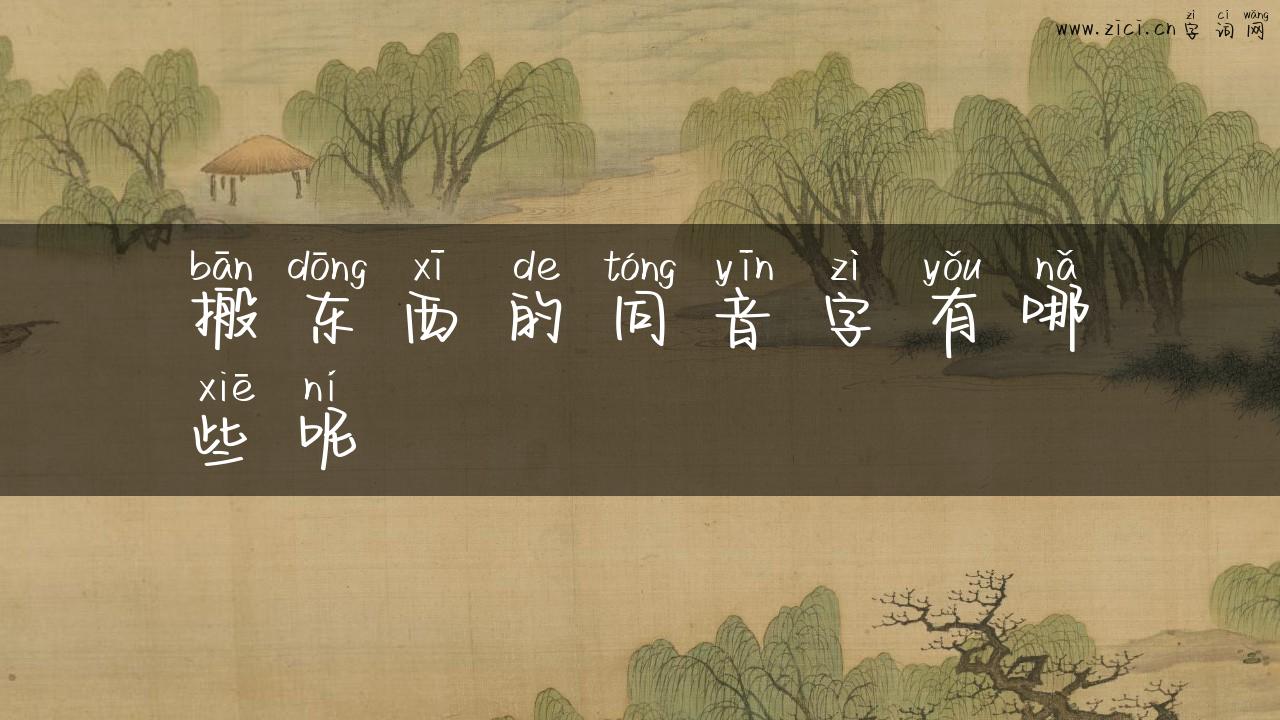 zì cí wǎng
www.zici.cn 字 词 网
bān dōng xī de tóng yīn zì yǒu nǎ
搬 东 西 的 同 音 字 有 哪
xiē ní
些 呢